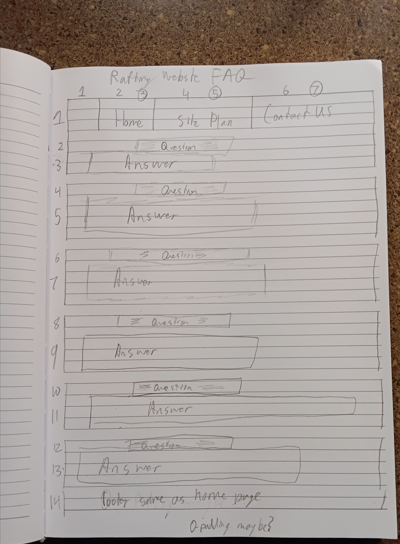 Rafting Website FAQ
1 2 3 4 5 6 7
1 Home Site Plan Contact Us
2 Question
3 Answer
4 Question
5 Answer
6 Question
7 Answer
8 Question
9 Answer
10 Question
11 Answer
12 Question
13 Answer
14 footer same as home page
maybe?